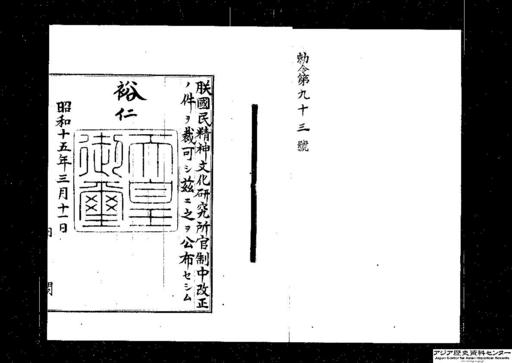 勅令第九十三號
朕國民精神文化研究所官制中改正
ノ件ヲ裁可シ茲ニ之ヲ公布セシム
裕仁
天皇御璽
昭和十五年三月十一日
アジア歴史資料センター
Japan Center for Asian Historical Records